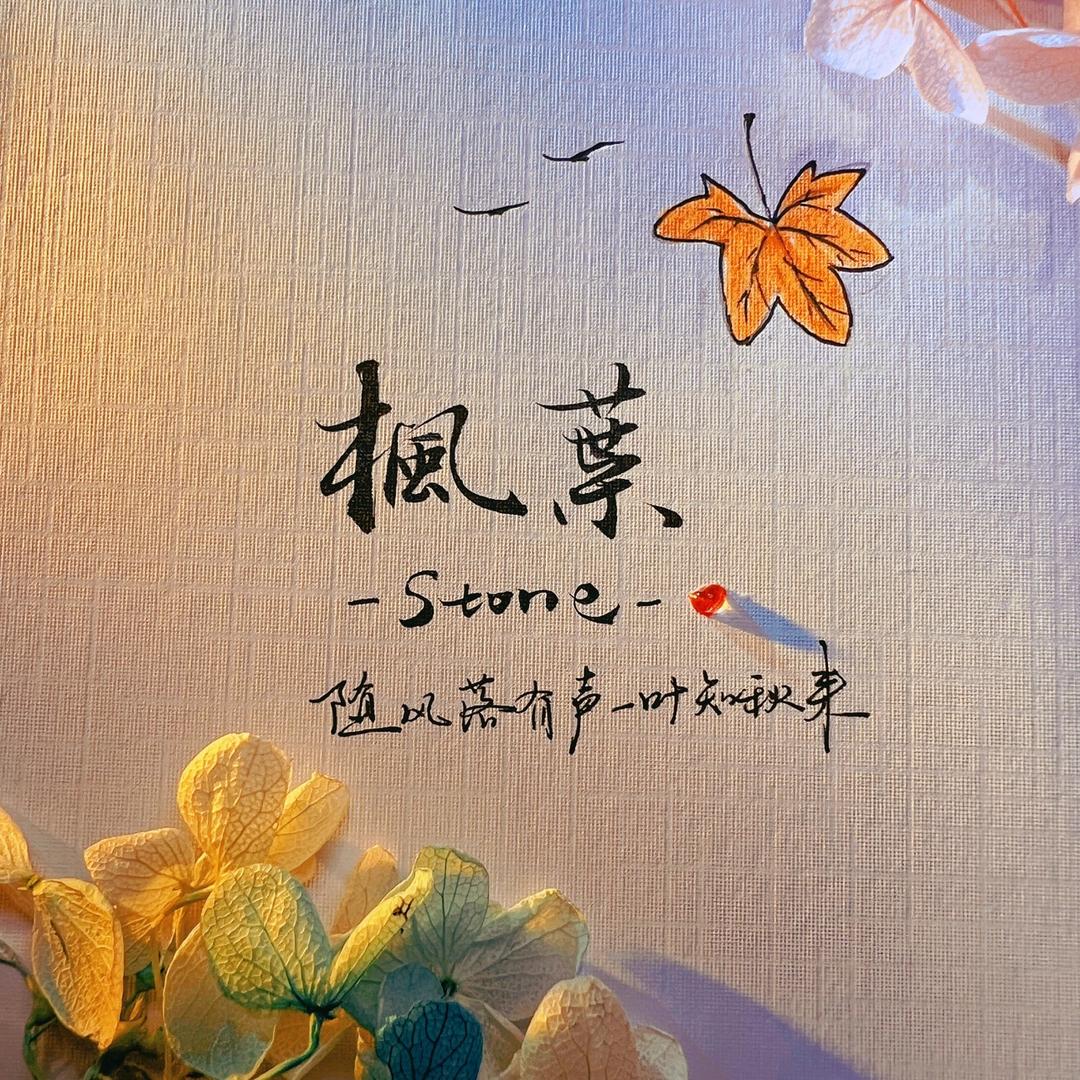 楓葉
-Stone-
随风落有声一叶知秋来